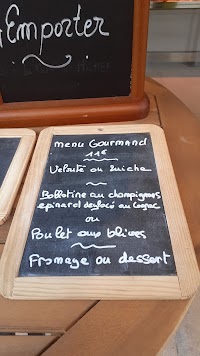 Emporter
menu Gourmand
11€
Velouté ou Quiche
Ballotine au champignons
epinard deglacé au Cognac
ou
Poulet aux olives
Fromage ou dessert